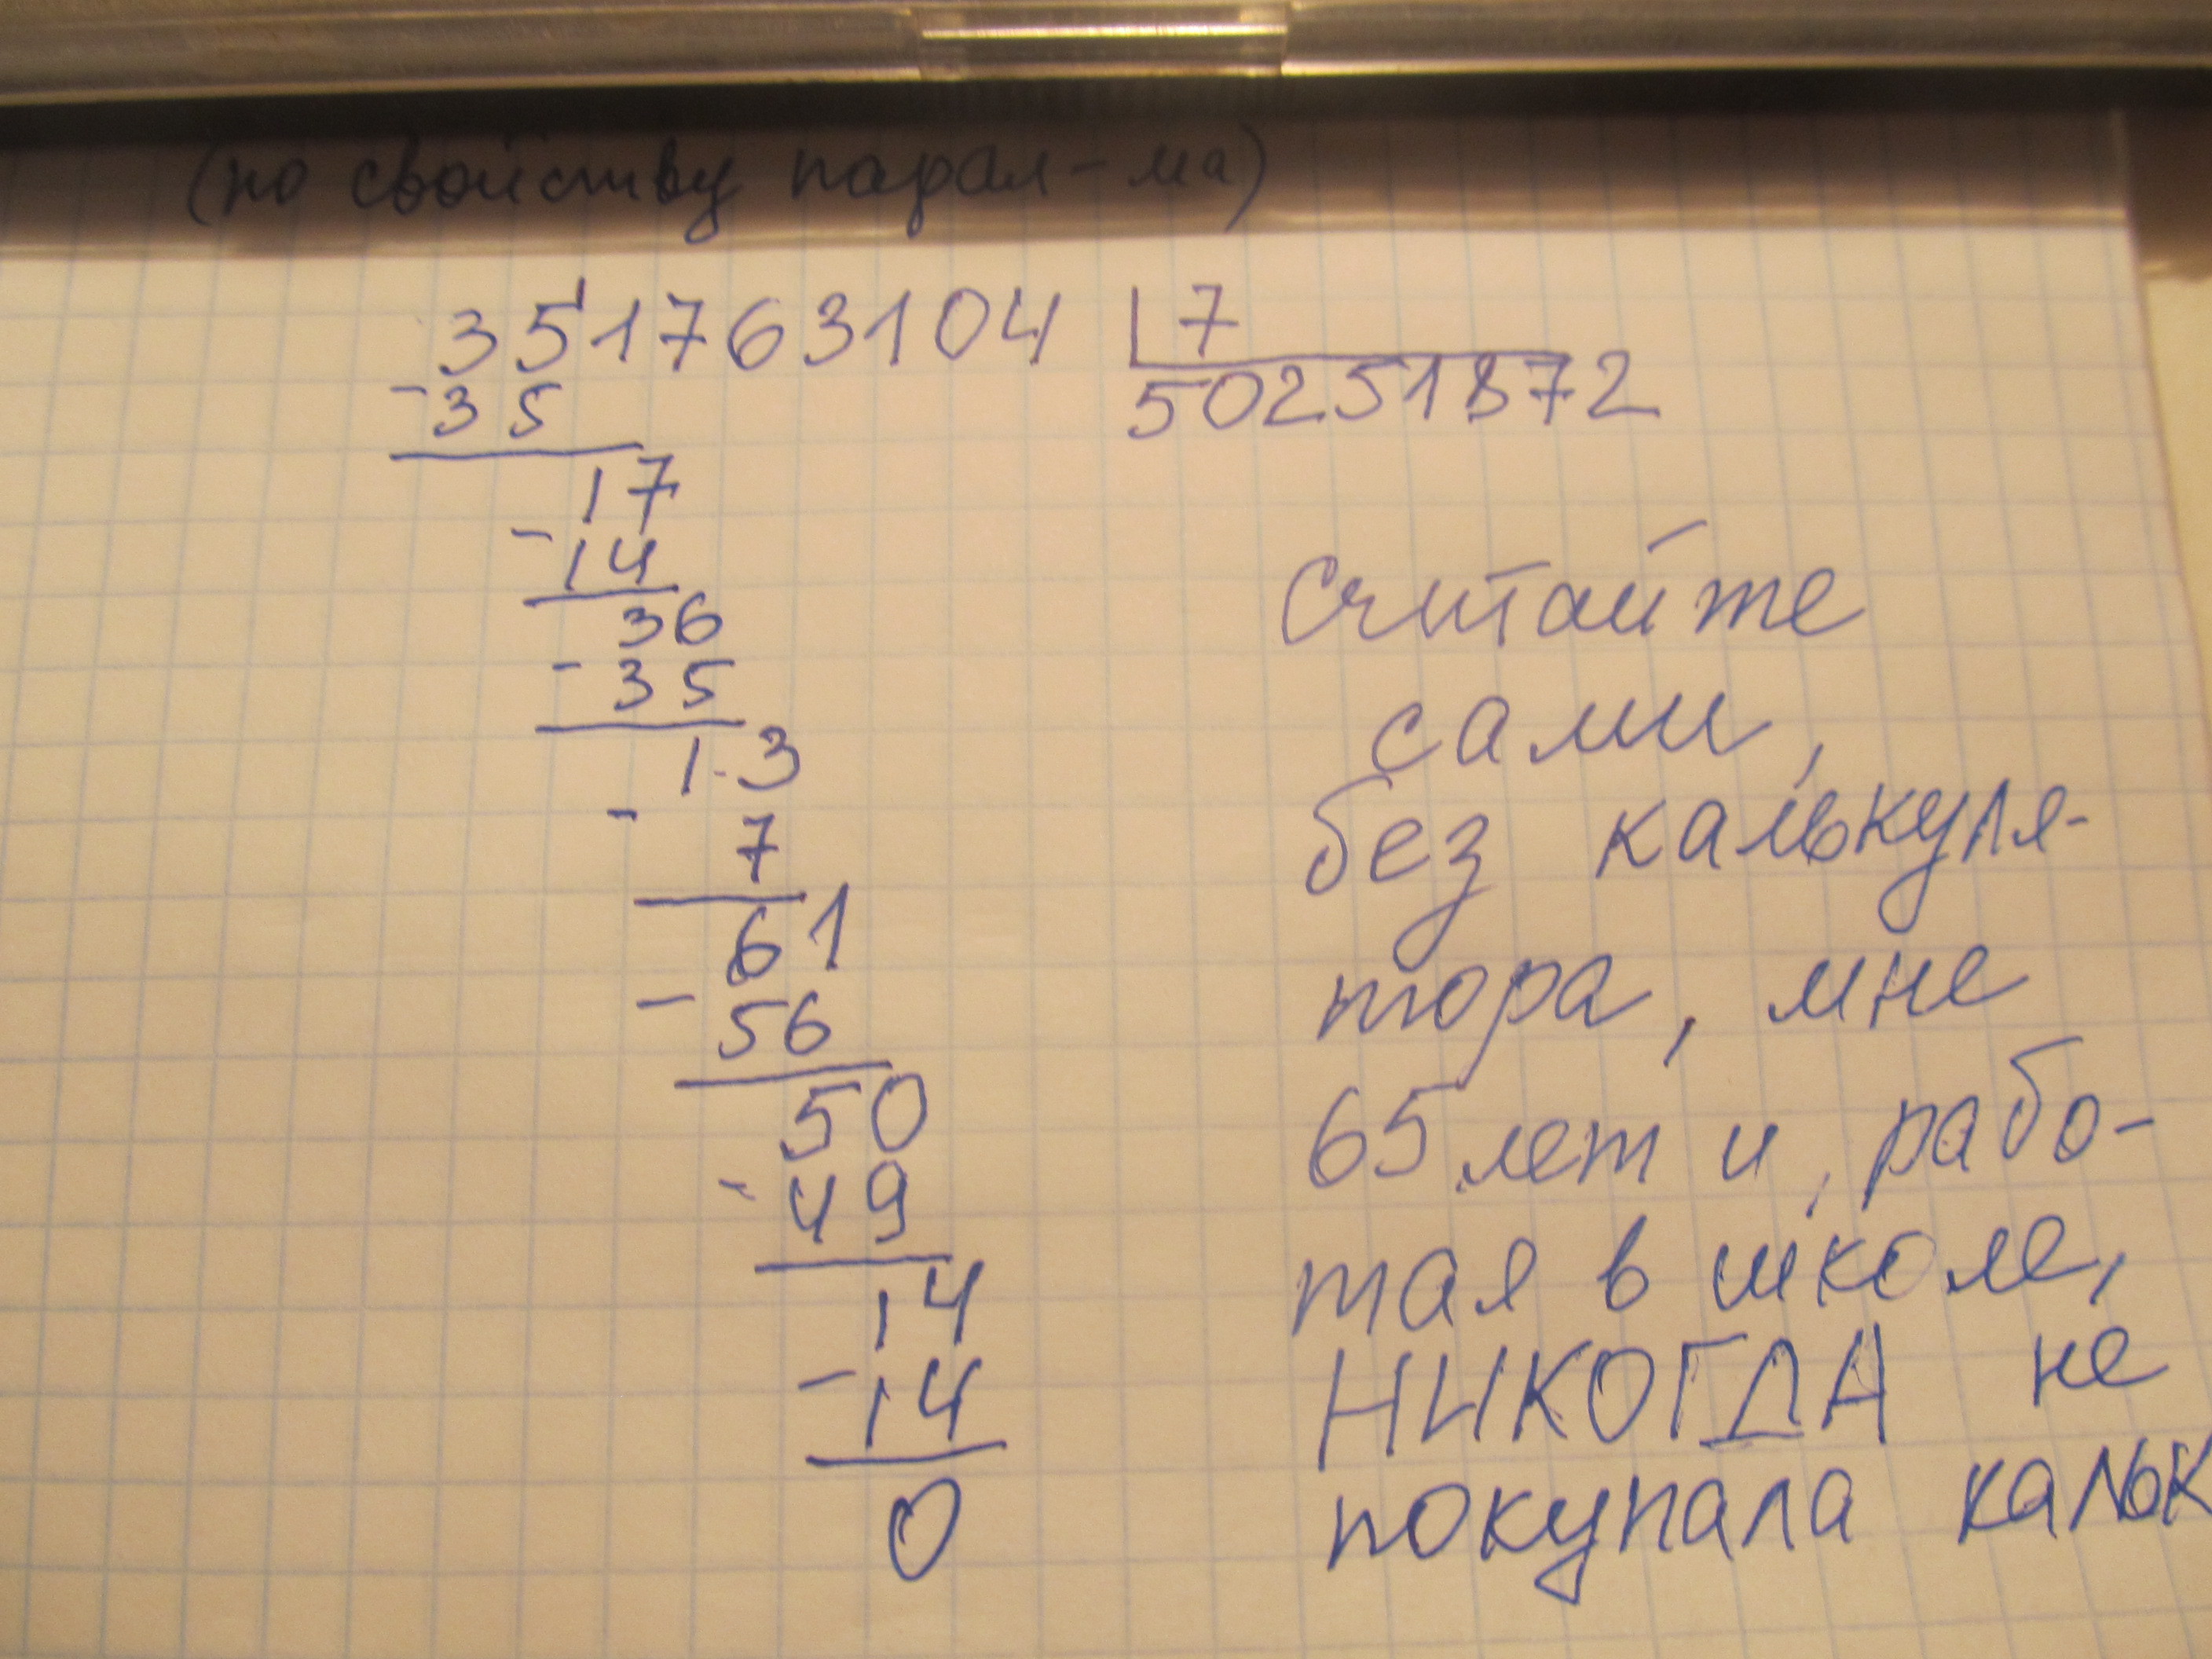 (по свойству парал-ма)
351763104 7
-35 50251872
17
-14
36
-35
13
-7
61
-56
50
-49
14
-14
0
Считайте
сами,
без калькуля-
тора, мне
65 лет и, рабо-
тая в школе,
НИКОГДА не
покупала кальк